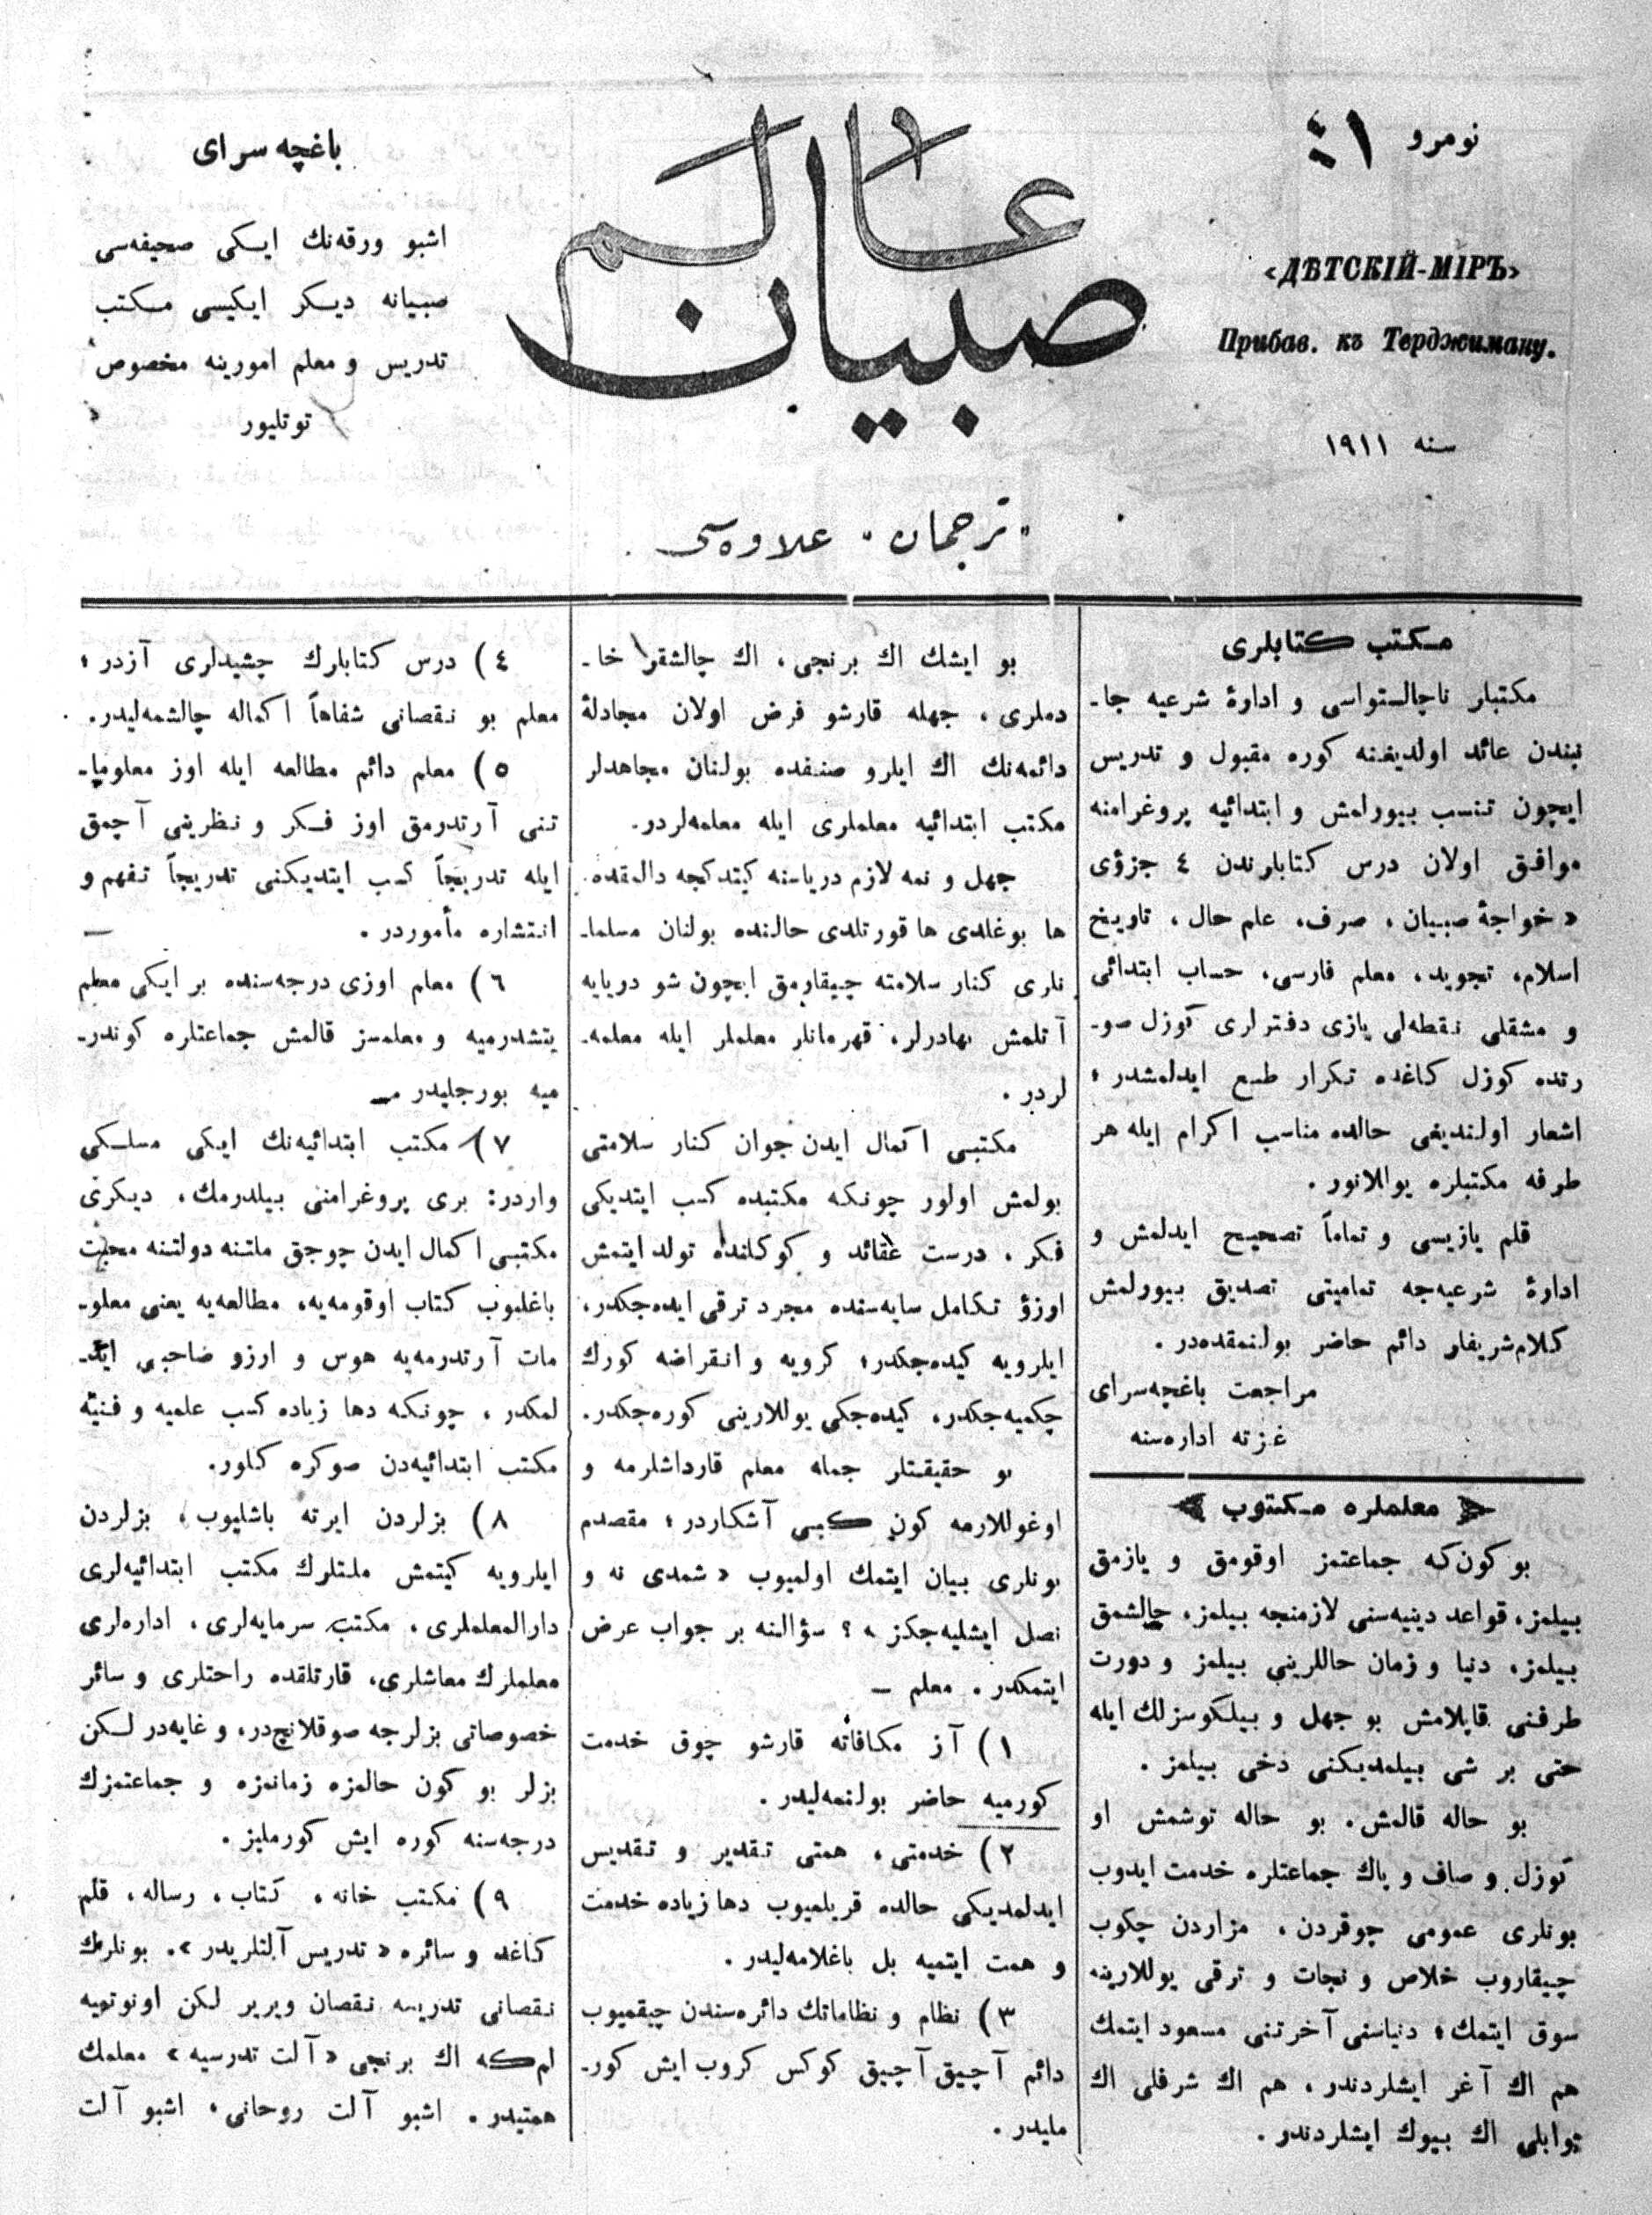 نومرو ١
«ДѢТСКІЙ-МІРЪ»
Прибав. къ Терджиману.
سنه ١٩١١
عالم
صبيان
«ترجمان» علاوه‌سى
باغچه سراى
اشبو ورقه‌نك ايكى صحيفه‌سى
صبيانه ديكر ايكيسى مكتب
تدريس و معلم امورينه مخصوص
توتليور
مكتب كتابلرى
مكتبلر ناچالستواسى و ادارۀ شرعيه جا‍ـ
نبندن عائد اولديغنه كوره مقبول و تدريس
ايچون تنسب بيورلمش و ابتدائيه پروغرامنه
موافق اولان درس كتابلرندن ٤ جزؤى
«خواجۀ صبيان، صرف، علم حال، تاريخ
اسلام، تجويد، معلم فارسى، حساب ابتدائى
و مشقلى نقطه‌لى يازى دفترلرى كوزل صو‍ـ
رتده كوزل كاغده تكرار طبع ايدلمشدر؛
اشعار اولنديغى حالده مناسب اكرام ايله هر
طرفه مكتبلره يوللانور.
قلم يازيسى و تماماً تصحيح ايدلمش و
ادارۀ شرعيه‌جه تماميتى تصديق بيورلمش
كلام‌شريفلر دائم حاضر بولنمقده‌در.
مراجعت باغچه‌سراى
غزته اداره‌سنه
معلملره مكتوب
بو كون‌كه جماعتمز اوقومق و يازمق
بيلمز، قواعد دينيه‌سنى لازمنجه بيلمز، چالشمق
بيلمز، دنيا و زمان حاللرينى بيلمز و دورت
طرفنى قاپلامش بو جهل و بيلكوسزلك ايله
حتى بر شى بيلمديكنى دخى بيلمز.
بو حاله قالمش. بو حاله توشمش او
كوزل و صاف و پاك جماعتلره خدمت ايدوب
بونلرى عمومى چوقردن، مزاردن چكوب
چيقاروب خلاص و نجات و ترقى يوللارينه
سوق ايتمك؛ دنياسنى آخرتنى مسعود ايتمك
هم اك آغر ايشلردندر، هم اك شرفلى اك
ثوابلى اك بيوك ايشلردندر.
بو ايشك اك برنجى، اك چالشقر خا‍ـ
دملرى، جهله قارشو فرض اولان مجادلۀ
دائمه‌نك اك ايلرو صنفده بولنان مجاهدلر
مكتب ابتدائيه معلملرى ايله معلمه‌لردر.
جهل و نمه لازم درياسنه كيتدكجه دالمقده.
ها بوغلدى ها قورتلدى حالنده بولنان مسلما‍ـ
نلرى كنار سلامته چيقارمق ايچون شو دريايه
آتلمش بهادرلر، قهرمانلر معلملر ايله معلمه‍ـ
لردر.
مكتبى اكمال ايدن جوان كنار سلامتى
بولمش اولور چونكه مكتبده كسب ايتديكى
فكر، درست عقائد و كوكلنده تولد ايتمش
اوزۇ تكامل سايه‌سنده مجرد ترقى ايده‌جكدر،
ايلرويه كيده‌جكدر؛ كرويه و انقراضه كورك
چكميه‌جكدر، كيده‌جكى يوللارينى كوره‌جكدر.
بو حقيقتلر جمله معلم قارداشلرمه و
اوغوللارمه كون كبى آشكاردر؛ مقصدم
بونلرى بيان ايتمك اولميوب «شمدى نه و
نصل ايشليه‌جكز»؟ سؤالنه بر جواب عرض
ايتمكدر. معلم —
١) آز مكافاته قارشو چوق خدمت
كورميه حاضر بولنمه‌ليدر.
٢) خدمتى، همتى تقدير و تقديس
ايدلمديكى حالده قريلميوب دها زياده خدمت
و همت ايتميه بل باغلامه‌ليدر.
٣) نظام و نظاماتك دائره‌سندن چيقميوب
دائم آچيق آچيق كوكس كروب ايش كور‍ـ
مليدر.
٤) درس كتابلرك چشيدلرى آزدر؛
معلم بو نقصانى شفاهاً اكماله چالشمه‌ليدر.
٥) معلم دائم مطالعه ايله اوز معلوما‍ـ
تنى آرتدرمق اوز فكر و نظرينى آچمق
ايله تدريجاً كسب ايتديكنى تدريجاً تفهم و
انتشاره مأموردر. —
٦) معلم اوزى درجه‌سنده بر ايكى معلم
يتشدرميه و معلمسز قالمش جماعتلره كوندر‍ـ
ميه بورجليدر —
٧) مكتب ابتدائيه‌نك ايكى مسلكى
واردر: برى پروغرامنى بيلدرمك، ديكرى
مكتبى اكمال ايدن چوجق ملتنه دولتنه محبت
باغليوب كتاب اوقومه‌يه، مطالعه‌يه يعنى معلو‍ـ
مات آرتدرمه‌يه هوس و ارزو صاحبى ايد‍ـ
لمكدر، چونكه دها زياده كسب علميه و فنيّه
مكتب ابتدائيه‌دن صوكره كلور.
٨) بزلردن ايرته باشليوب، بزلردن
ايلرويه كيتمش ملتلرك مكتب ابتدائيه‌لرى
دارالمعلملرى، مكتب سرمايه‌لرى، اداره‌لرى
معلملرك معاشلرى، قارتلقده راحتلرى و سائر
خصوصاتى بزلرجه صوقلانچ‌در، و غايه‌در لكن
بزلر بو كون حالمزه زمانمزه و جماعتمزك
درجه‌سنه كوره ايش كورمليز.
٩) مكتب خانه، كتاب، رساله، قلم
كاغد و سائره «تدريس آلتلريدر». بونلرك
نقصانى تدريسه نقصان ويرير لكن اونوتميه
لم‌كه اك برنجى «آلت تدرسيه» معلمك
همتيدر. اشبو آلت روحانى، اشبو آلت